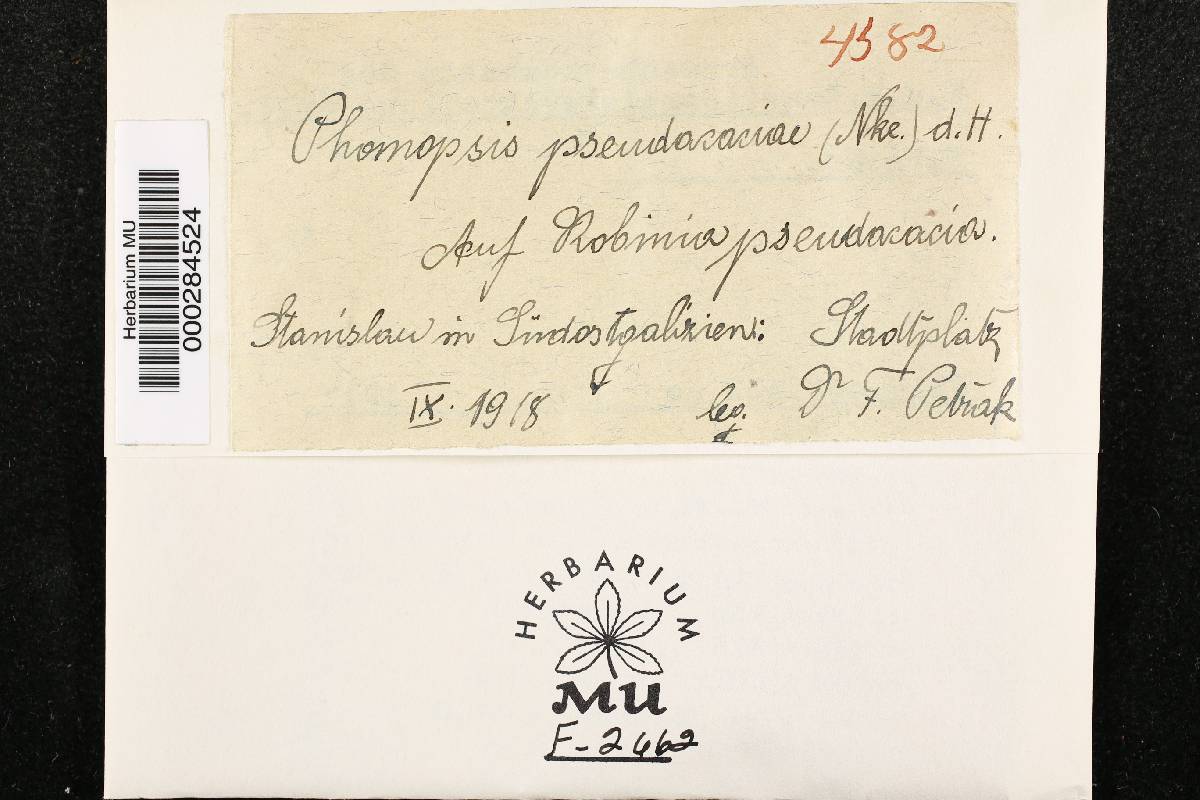 4382
Phomopsis pseudacaciae (Nke.) d. H.
Auf Robinia pseudacacia.
Stanislau in Südostgalizien: Stadtplatz
IX. 1918 leg. Dr F. Petrak
Herbarium MU
000284524
HERBARIUM
MU
F-2462